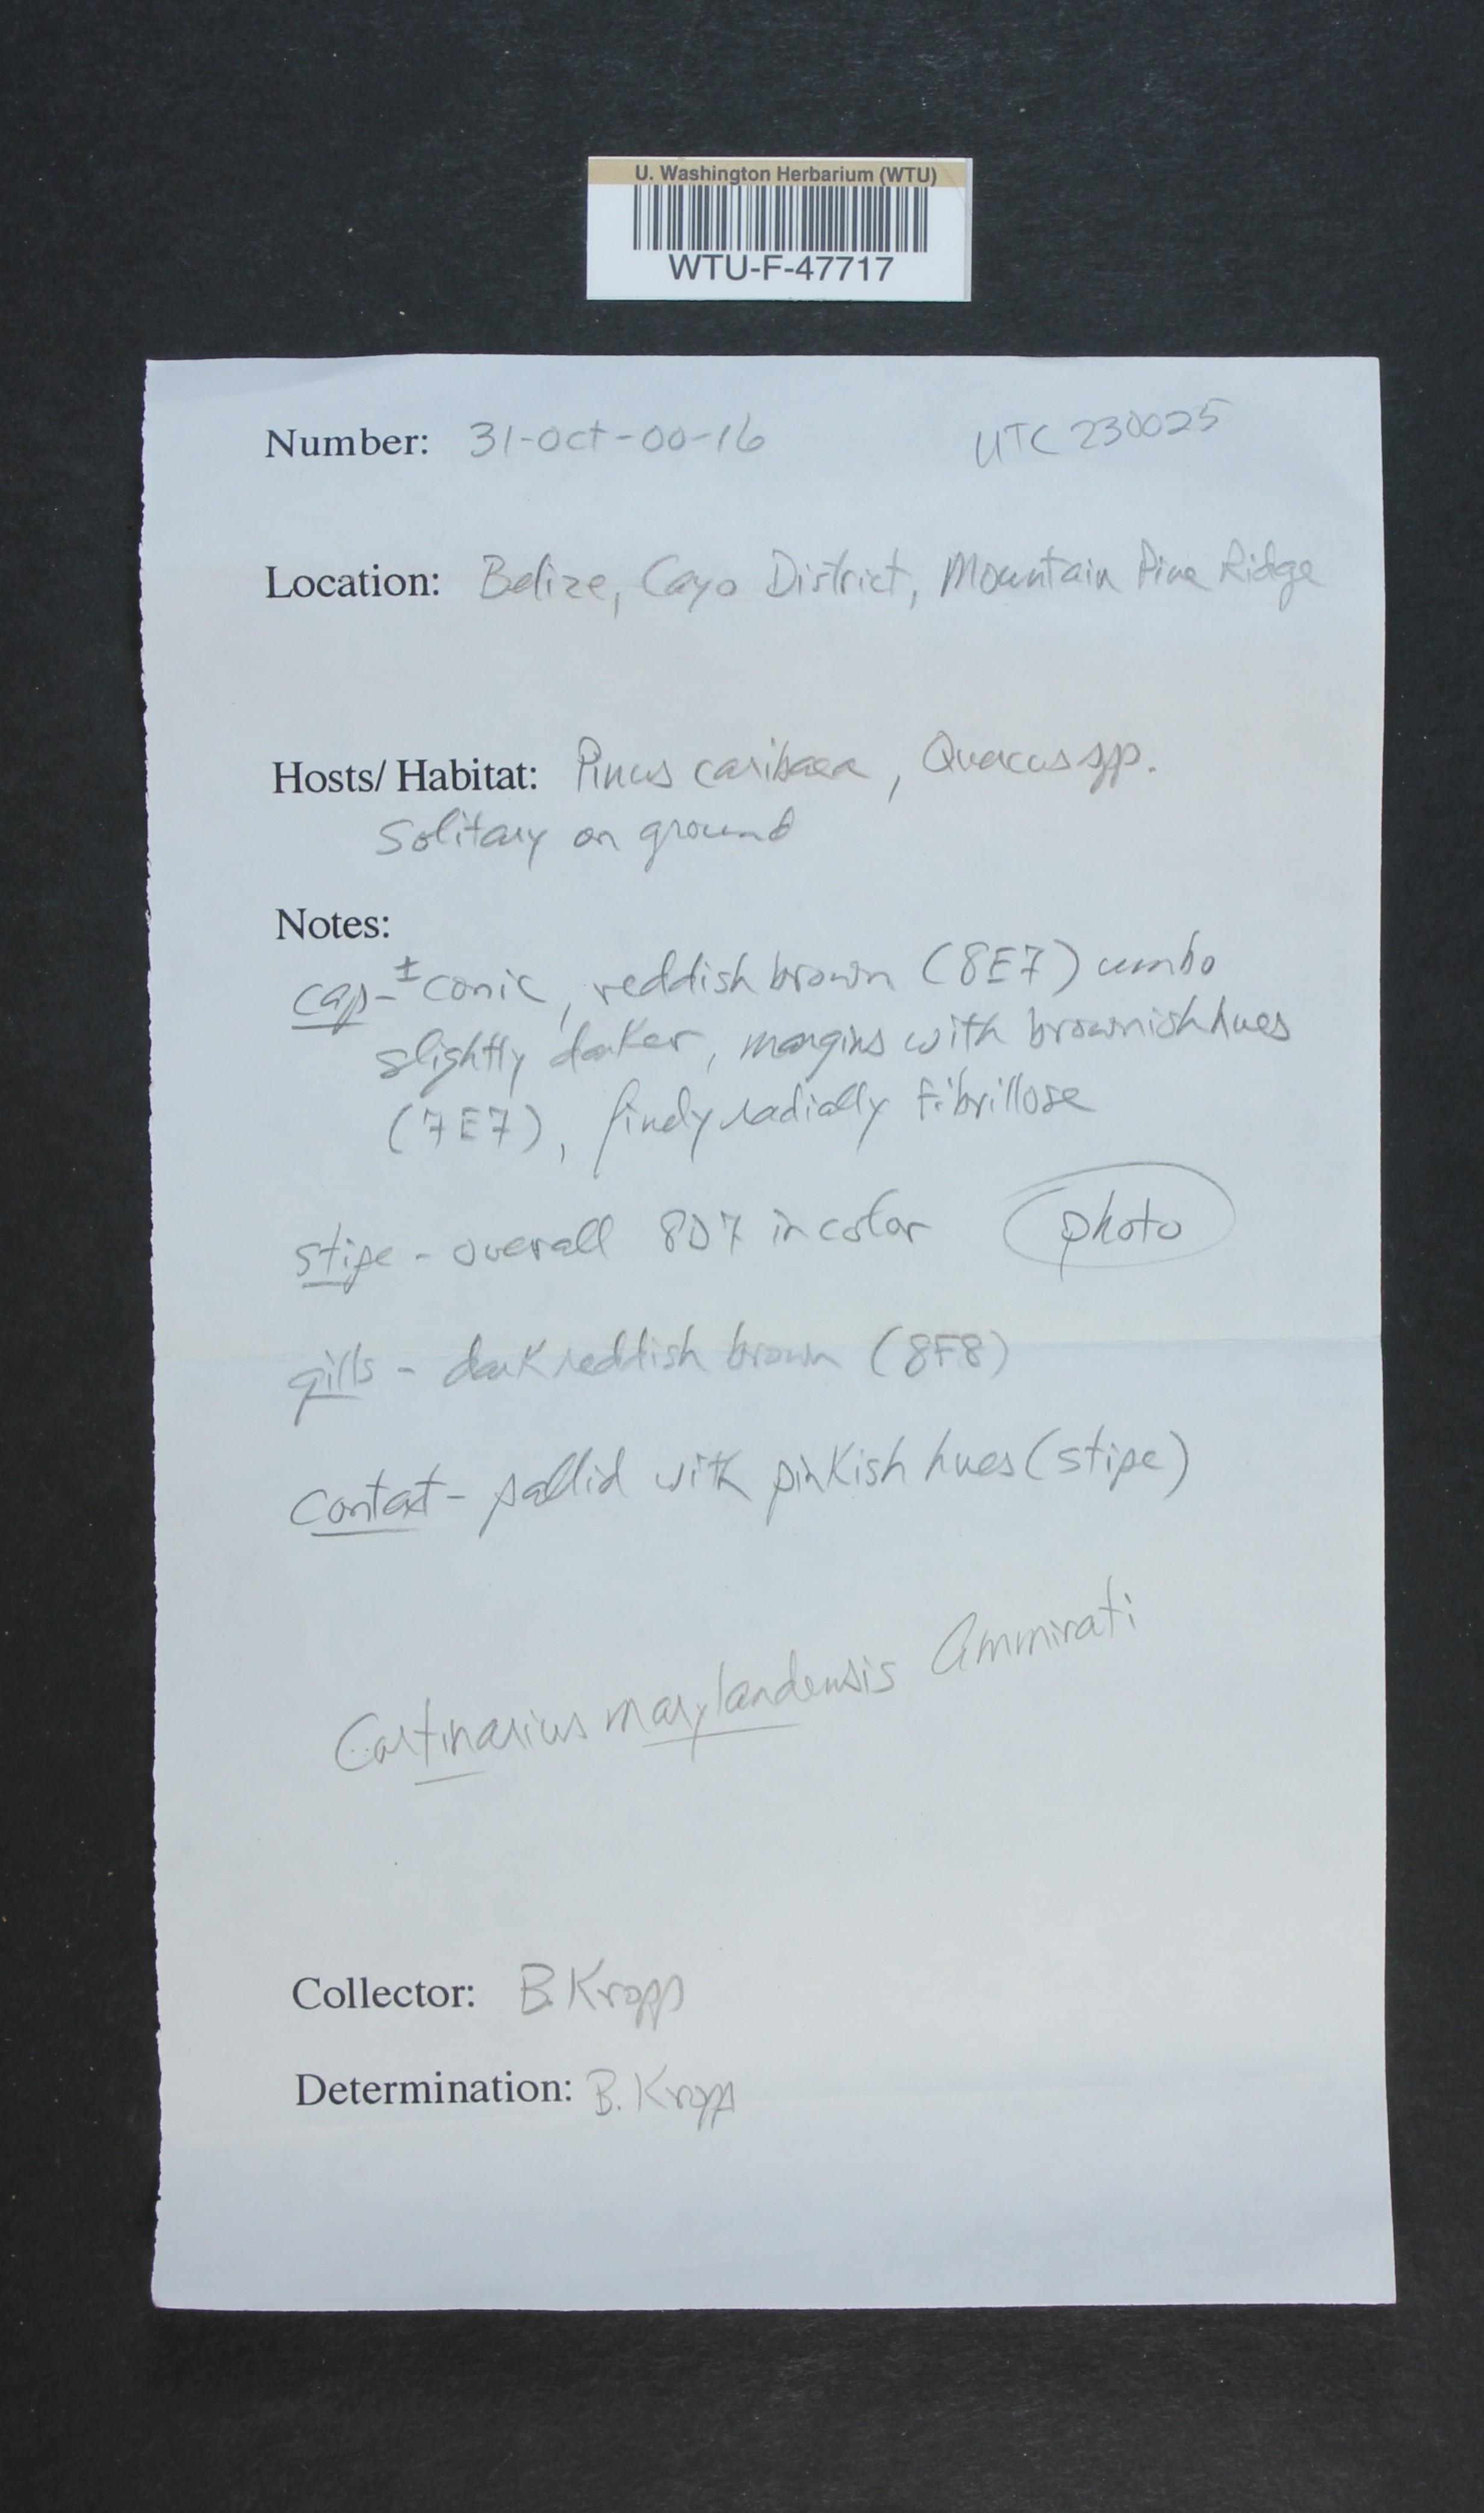 U. Washington Herbarium (WTU)
WTU-F-47717
Number: 31-Oct-00-16 UTC 230025
Location: Belize, Cayo District, Mountain Pine Ridge
Hosts/ Habitat: Pinus caribaea, Quercus spp.
Solitary on ground
Notes:
cap - ± conic, reddish brown (8E7) umbo
slightly darker, margins with brownish hues
(7E7), finely radially fibrillose
stipe - overall 8D7 in color photo
gills - dark reddish brown (8F8)
context - pallid with pinkish hues (stipe)
Cortinarius marylandensis Ammirati
Collector: B. Kropp
Determination: B. Kropp